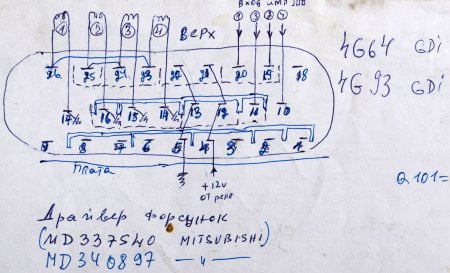 ВХОД ИМП
① ③ ② ④
① ② ③ ④ ВЕРХ
4G64 GDi
4G93 GDi
26 25 24 23 22 21 20 19 18
17 16 15 14 13 12 11 10
9 8 7 6 5 4 3 2 1
Плата
З
+12V
от реле
Q101=
Драйвер Форсунок
(MD337540 MITSUBISHI)
MD340897 — " —